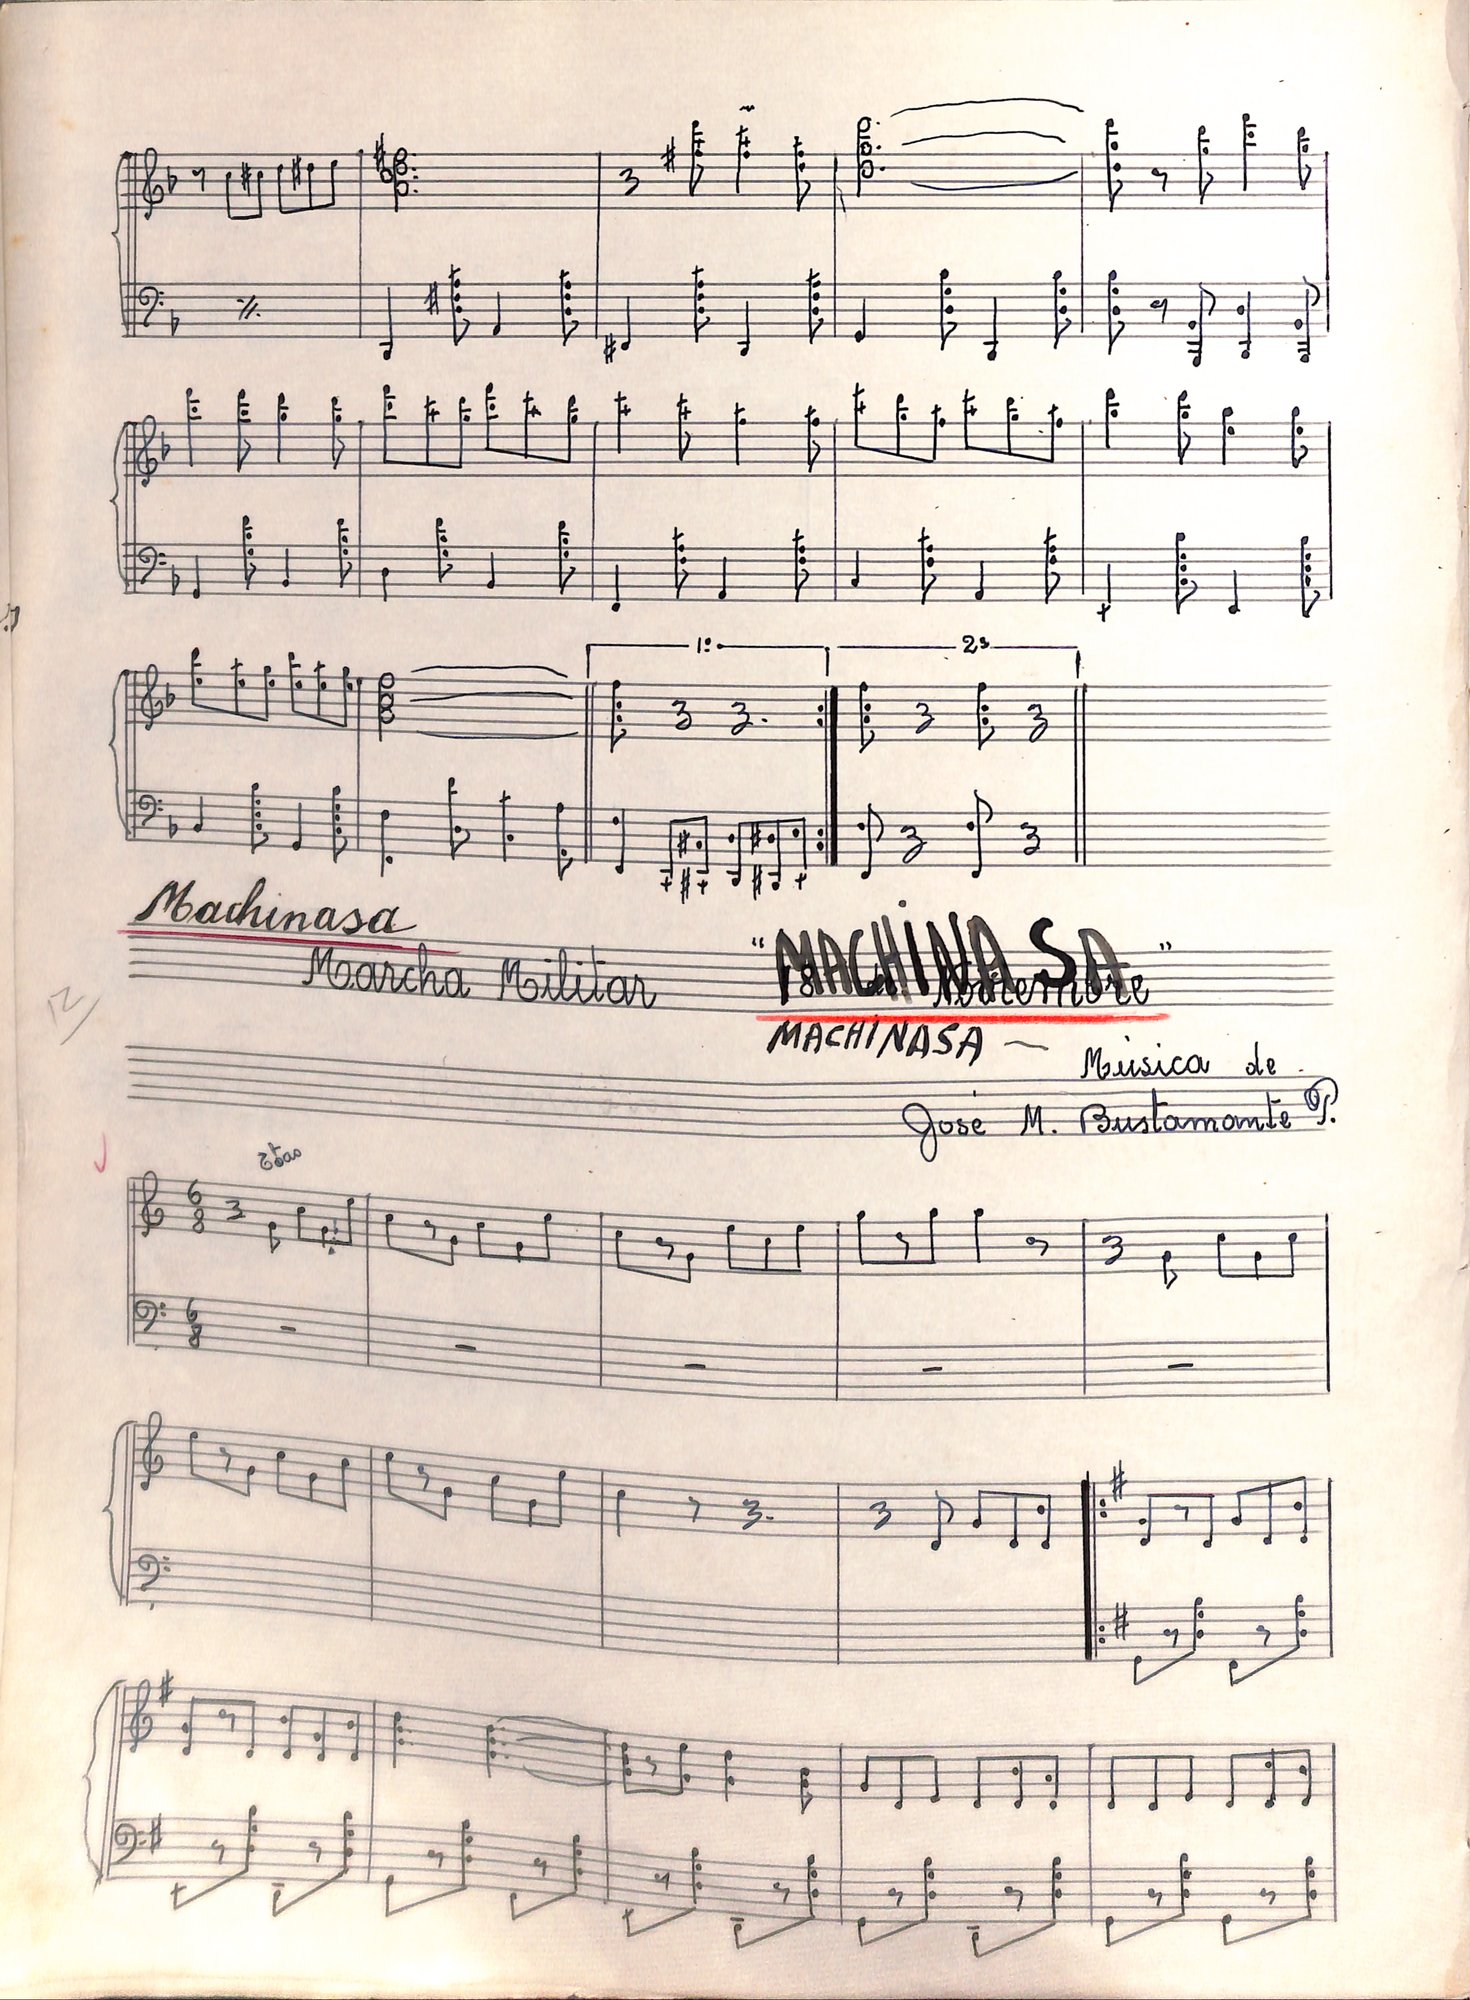 1º
2ª
Machinasa
Marcha Militar
"MACHINASA"
MACHINASA
Música de
José M. Bustamante P.
12
6
8
6
8